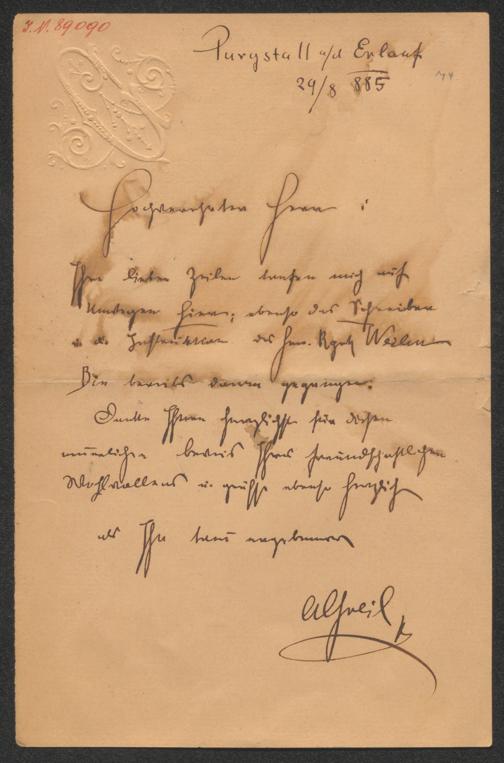 I.N. 89090
Purgstall a/d Erlauf
29/8 885
Hochverehrter Herr :
Ihre lieben Zeilen trafen mich auf
Umwegen hier; ebenso das Schreiben
u. d. Instruktion des Hrn. Rgrth Weilen
Bin bereits daran gegangen.
Danke Ihnen herzlichst für diesen
neuerlichen beweis Ihres freundschaftlichen
Wohlwollens u. grüße ebenso herzlich
als Ihr treu ergebener
AGreil